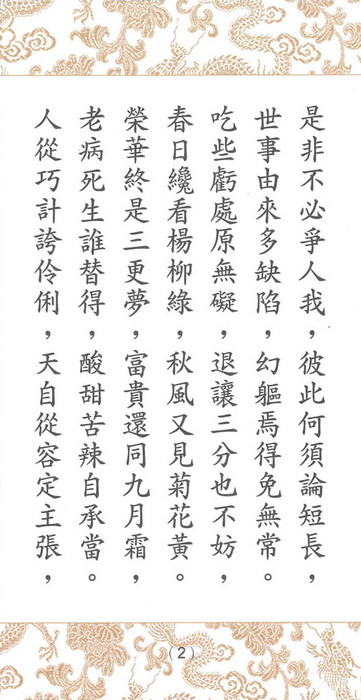 是非不必爭人我，彼此何須論短長，
世事由來多缺陷，幻軀焉得免無常。
吃些虧處原無礙，退讓三分也不妨，
春日纔看楊柳綠，秋風又見菊花黃。
榮華終是三更夢，富貴還同九月霜，
老病死生誰替得，酸甜苦辣自承當。
人從巧計誇伶俐，天自從容定主張，
（2）